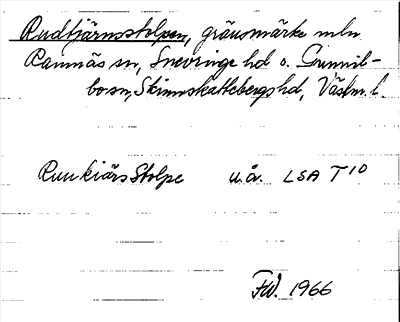 Rudtjärnsstolpen, gränsmärke mln
Ramnäs sn, Snevringe hd o. Gunnil-
bo sn, Skinnskattebergs hd, Västm. l.
Runkiärs Stolpe u.å. LSA T10
F.W. 1966